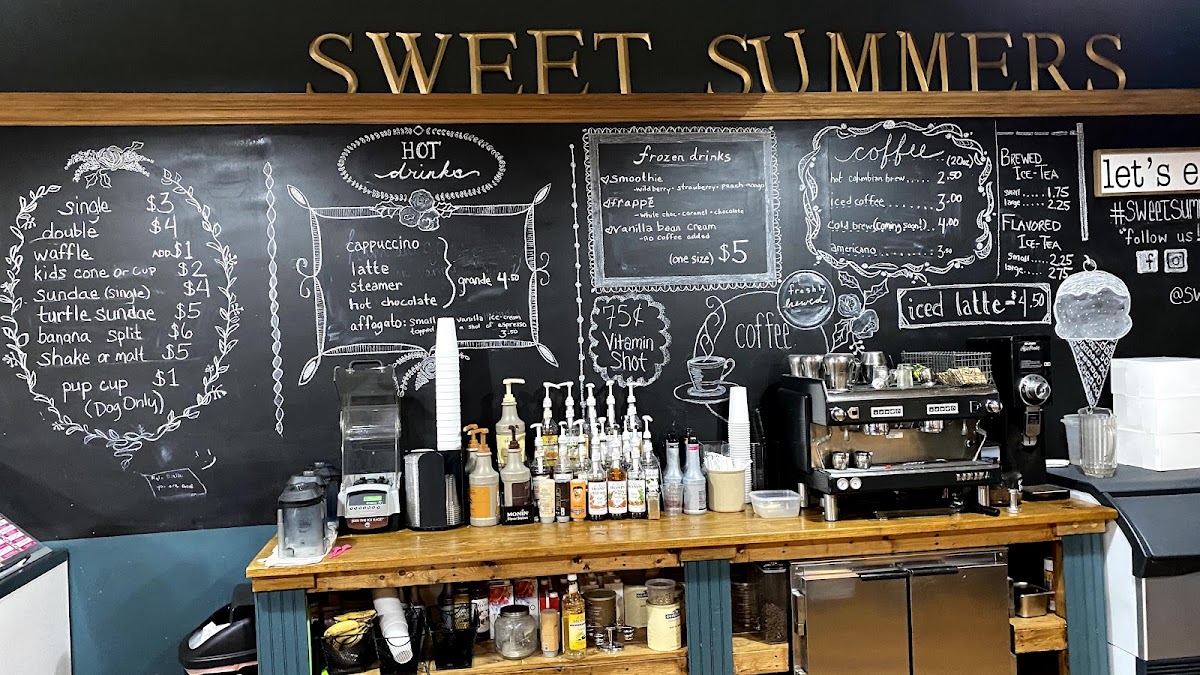 SWEET SUMMERS
single $3
double $4
waffle ADD $1
kids cone or cup $2
sundae (single) $4
turtle sundae $5
banana split $6
shake or malt $5
pup cup $1
(Dog Only)
HOT
drinks
cappuccino
latte
steamer
hot chocolate
grande 4.50
affogato: small vanilla ice cream
topped a shot of espresso
3.50
frozen drinks
smoothie
-wildberry- strawberry- peach-mango
frappé
-white choc-caramel-chocolate
vanilla bean cream
-no coffee added
(one size) $5
75¢
Vitamin
Shot
coffee
freshly
brewed
coffee (20oz)
hot columbian brew.... 2.50
iced coffee ........ 3.00
cold brew (coming soon!).. 4.00
americano ... 3.50
iced latte $4.50
BREWED
ICE-TEA
small.....1.75
large......2.25
FLAVORED
ICE-TEA
small.....2.25
large.....2.75
let's e
#SWEETSUM
"follow us!
f
@SW
MONIN